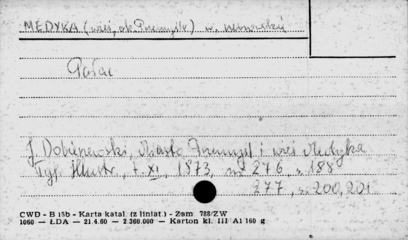 MEDYKA (wieś, ok. Przemyśla) w. lwowskie
Pałac
J. Dobiszewski, Miasto Przemyśl i wieś Medyka
Tyg. Illustr., t. XI, 1873, nr 276, s. 188
277, s. 200, 201
CWD - B 15b - Karta katal. (z liniat.) - Zam 788/ZW
1060 — ŁDA — 21.4.60 — 2.360.000 — Karton kl. III A1 160 g